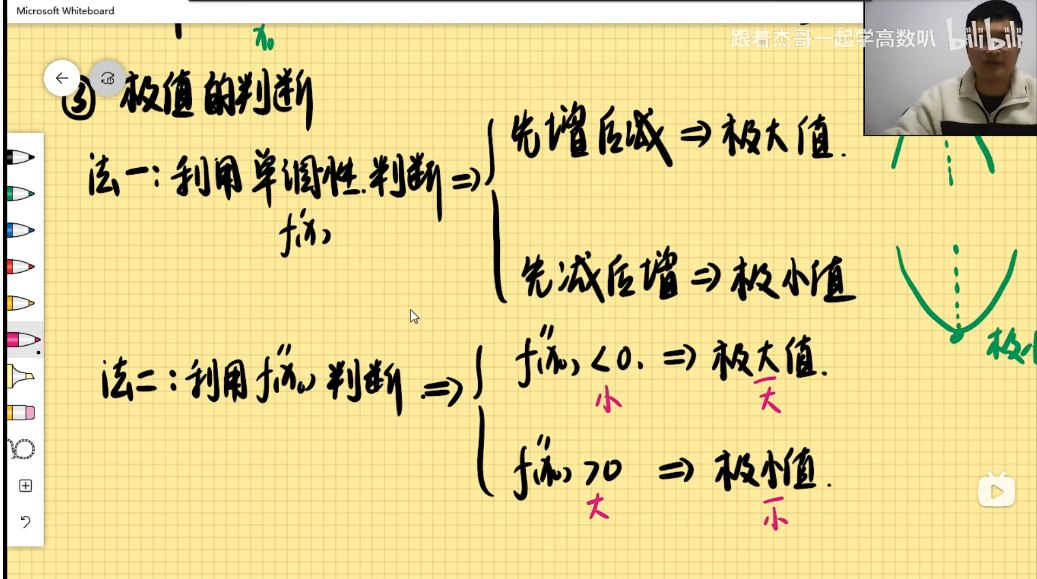 Microsoft Whiteboard
跟着杰哥一起学高数叭 bilibili
x₀
③ 极值的判断
法一:利用单调性.判断 ⇒
f'(x)
先增后减 ⇒ 极大值.
先减后增 ⇒ 极小值
极小
法二:利用f''(x₀)判断 ⇒
f''(x₀) <0. ⇒ 极大值.
小 大
f''(x₀) >0 ⇒ 极小值.
大 小